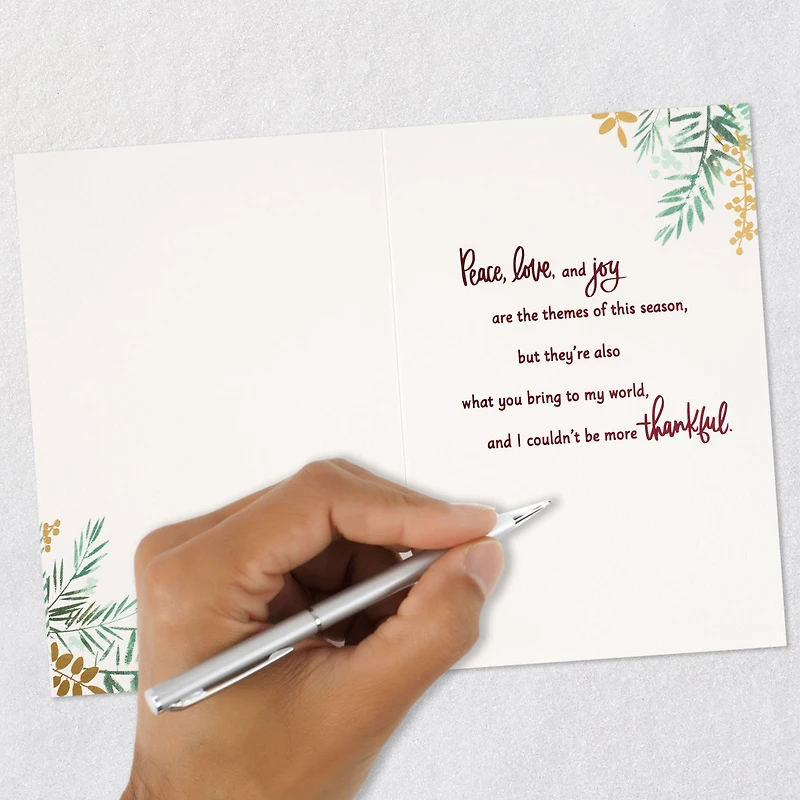 Peace, love, and joy
are the themes of this season,
but they're also
what you bring to my world,
and I couldn't be more thankful.